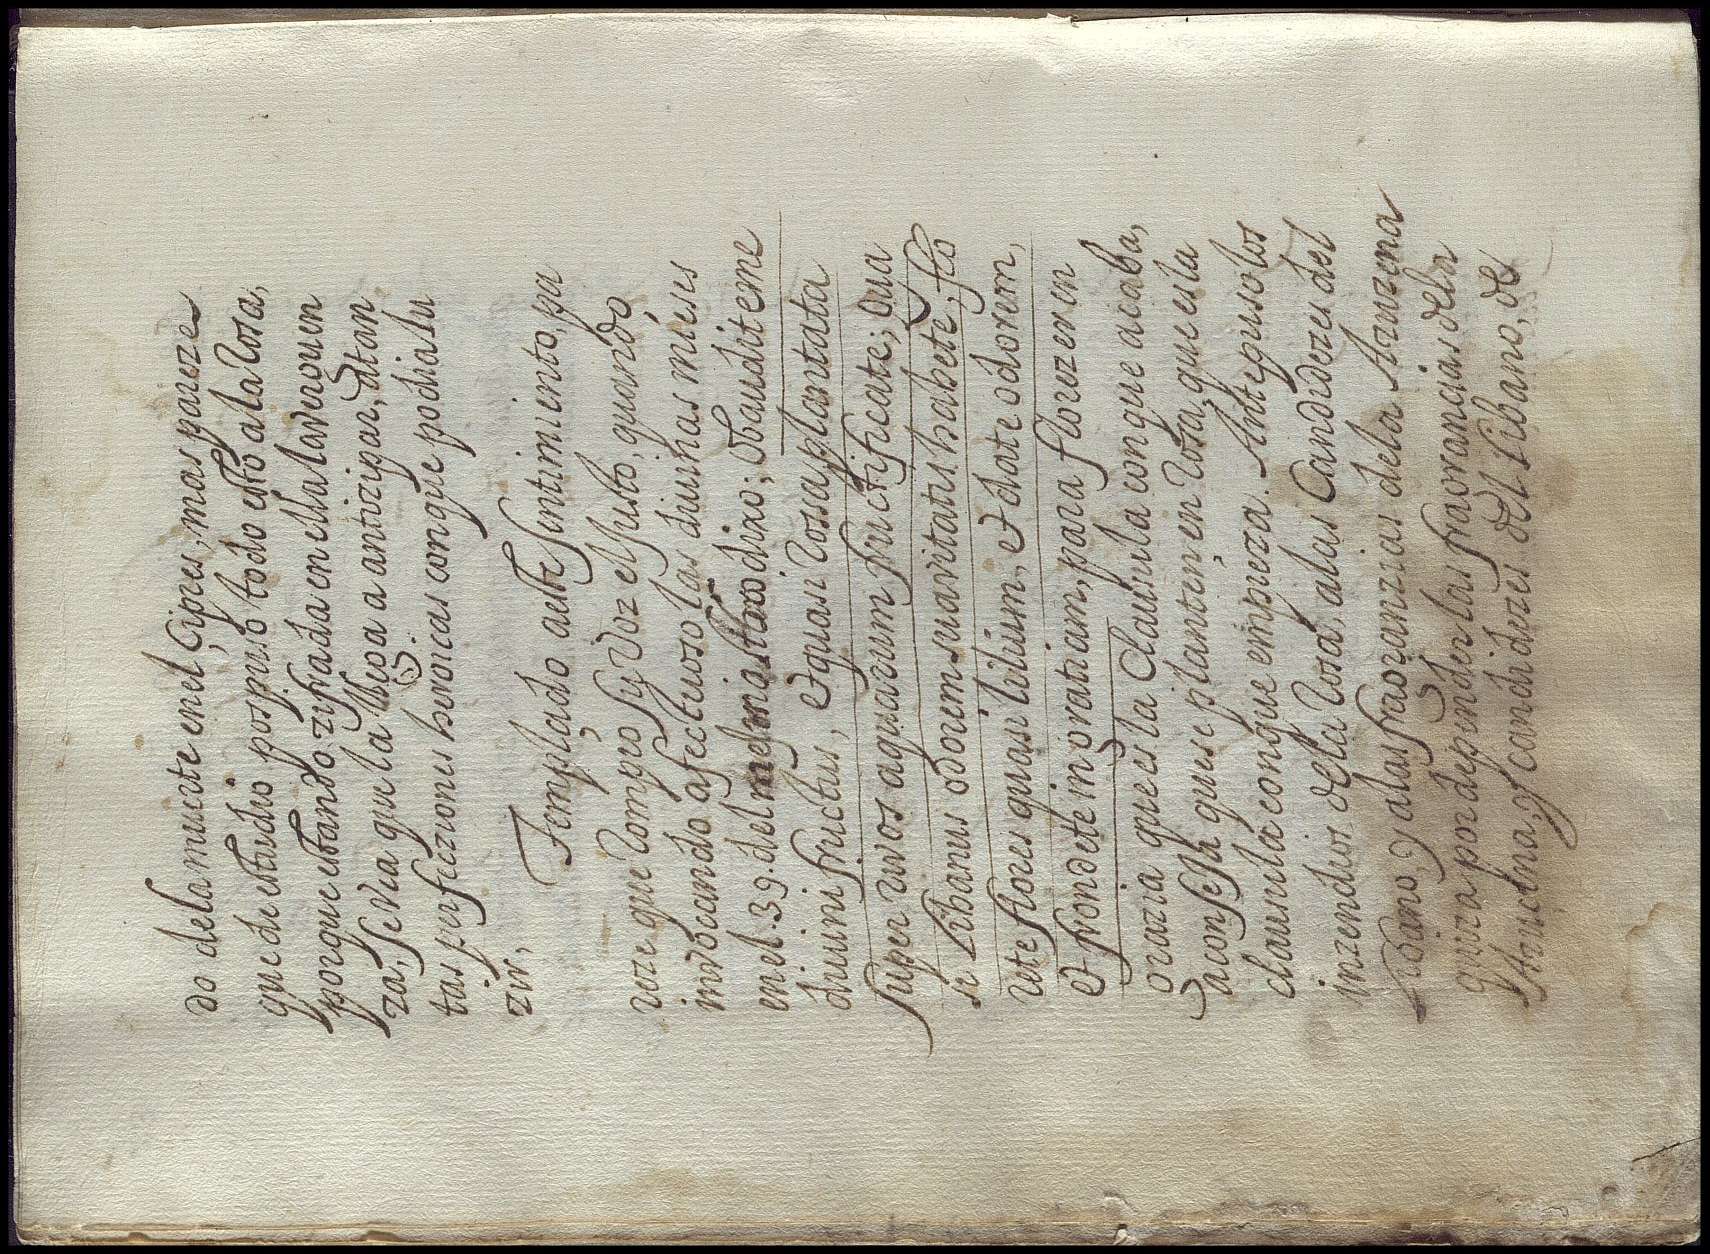 do dela muerte enel, Cipres, mas pareze
que de estudio pospuso todo esto ala Rosa,
porque estando zifrada en ella la brauen
za, se Via que la llega a antizipar, de tan
tas perfecziones heroicas con que podia lu
zir,
Templado aeste sentimiento, pa
reze que Rompio su Voz el Justo, quando,
invocando afectuoso las diuinas mieses
en el .39. del dixo; obaudite me
diuini fructus, et quasi Rosa plantata
super riuos aquarum fructificate; qua
si Libanus odorem suavitatis habete, flo
rete flores quasi lilium, et date odorem,
et frondete in gratiam, para florezer en
grazia que es la Clausula con que acaba,
aconseja que se planten, en Rosa, que es la
clausula con que empieza. Antepuso los
inzendios dela Rosa, alas Candidezes del
Libano, y alas fragranzias dela Azuzena
quiza por depender las fragrancias dela
Azucena, y candidezes del Libano, de